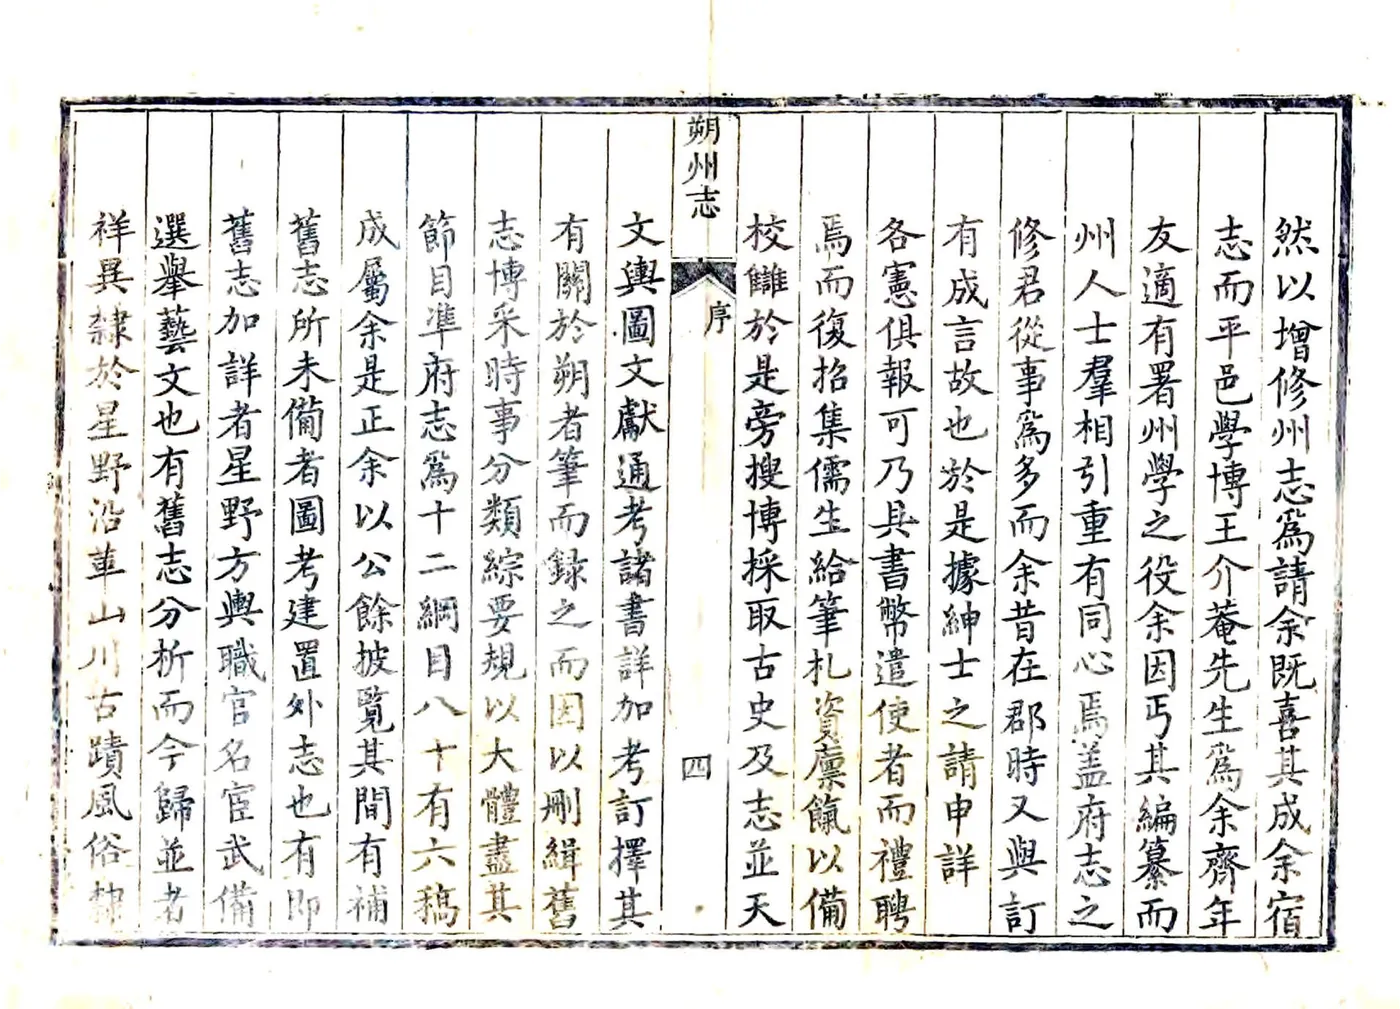 然以增修州志爲請余既喜其成余宿
志而平邑學博王介菴先生爲余齊年
友適有署州學之役余因丐其編纂而
州人士羣相引重有同心焉盖府志之
修君從事爲多而余昔在郡時又與訂
有成言故也於是據紳士之請申詳
各憲俱報可乃具書幣遣使者而禮聘
焉而復招集儒生給筆札資廪餼以備
校讎於是旁搜博採取古史及志並天
朔州志
序
四
文輿圖文獻通考諸書詳加考訂擇其
有關於朔者筆而録之而因以刪緝舊
志博采時事分類綜要規以大體盡其
節目凖府志爲十二綱目八十有六稿
成屬余是正余以公餘披覧其間有補
舊志所未備者圖考建置外志也有即
舊志加詳者星野方輿職官名宦武備
選舉藝文也有舊志分析而今歸並者
祥異隸於星野沿革山川古蹟風俗隸